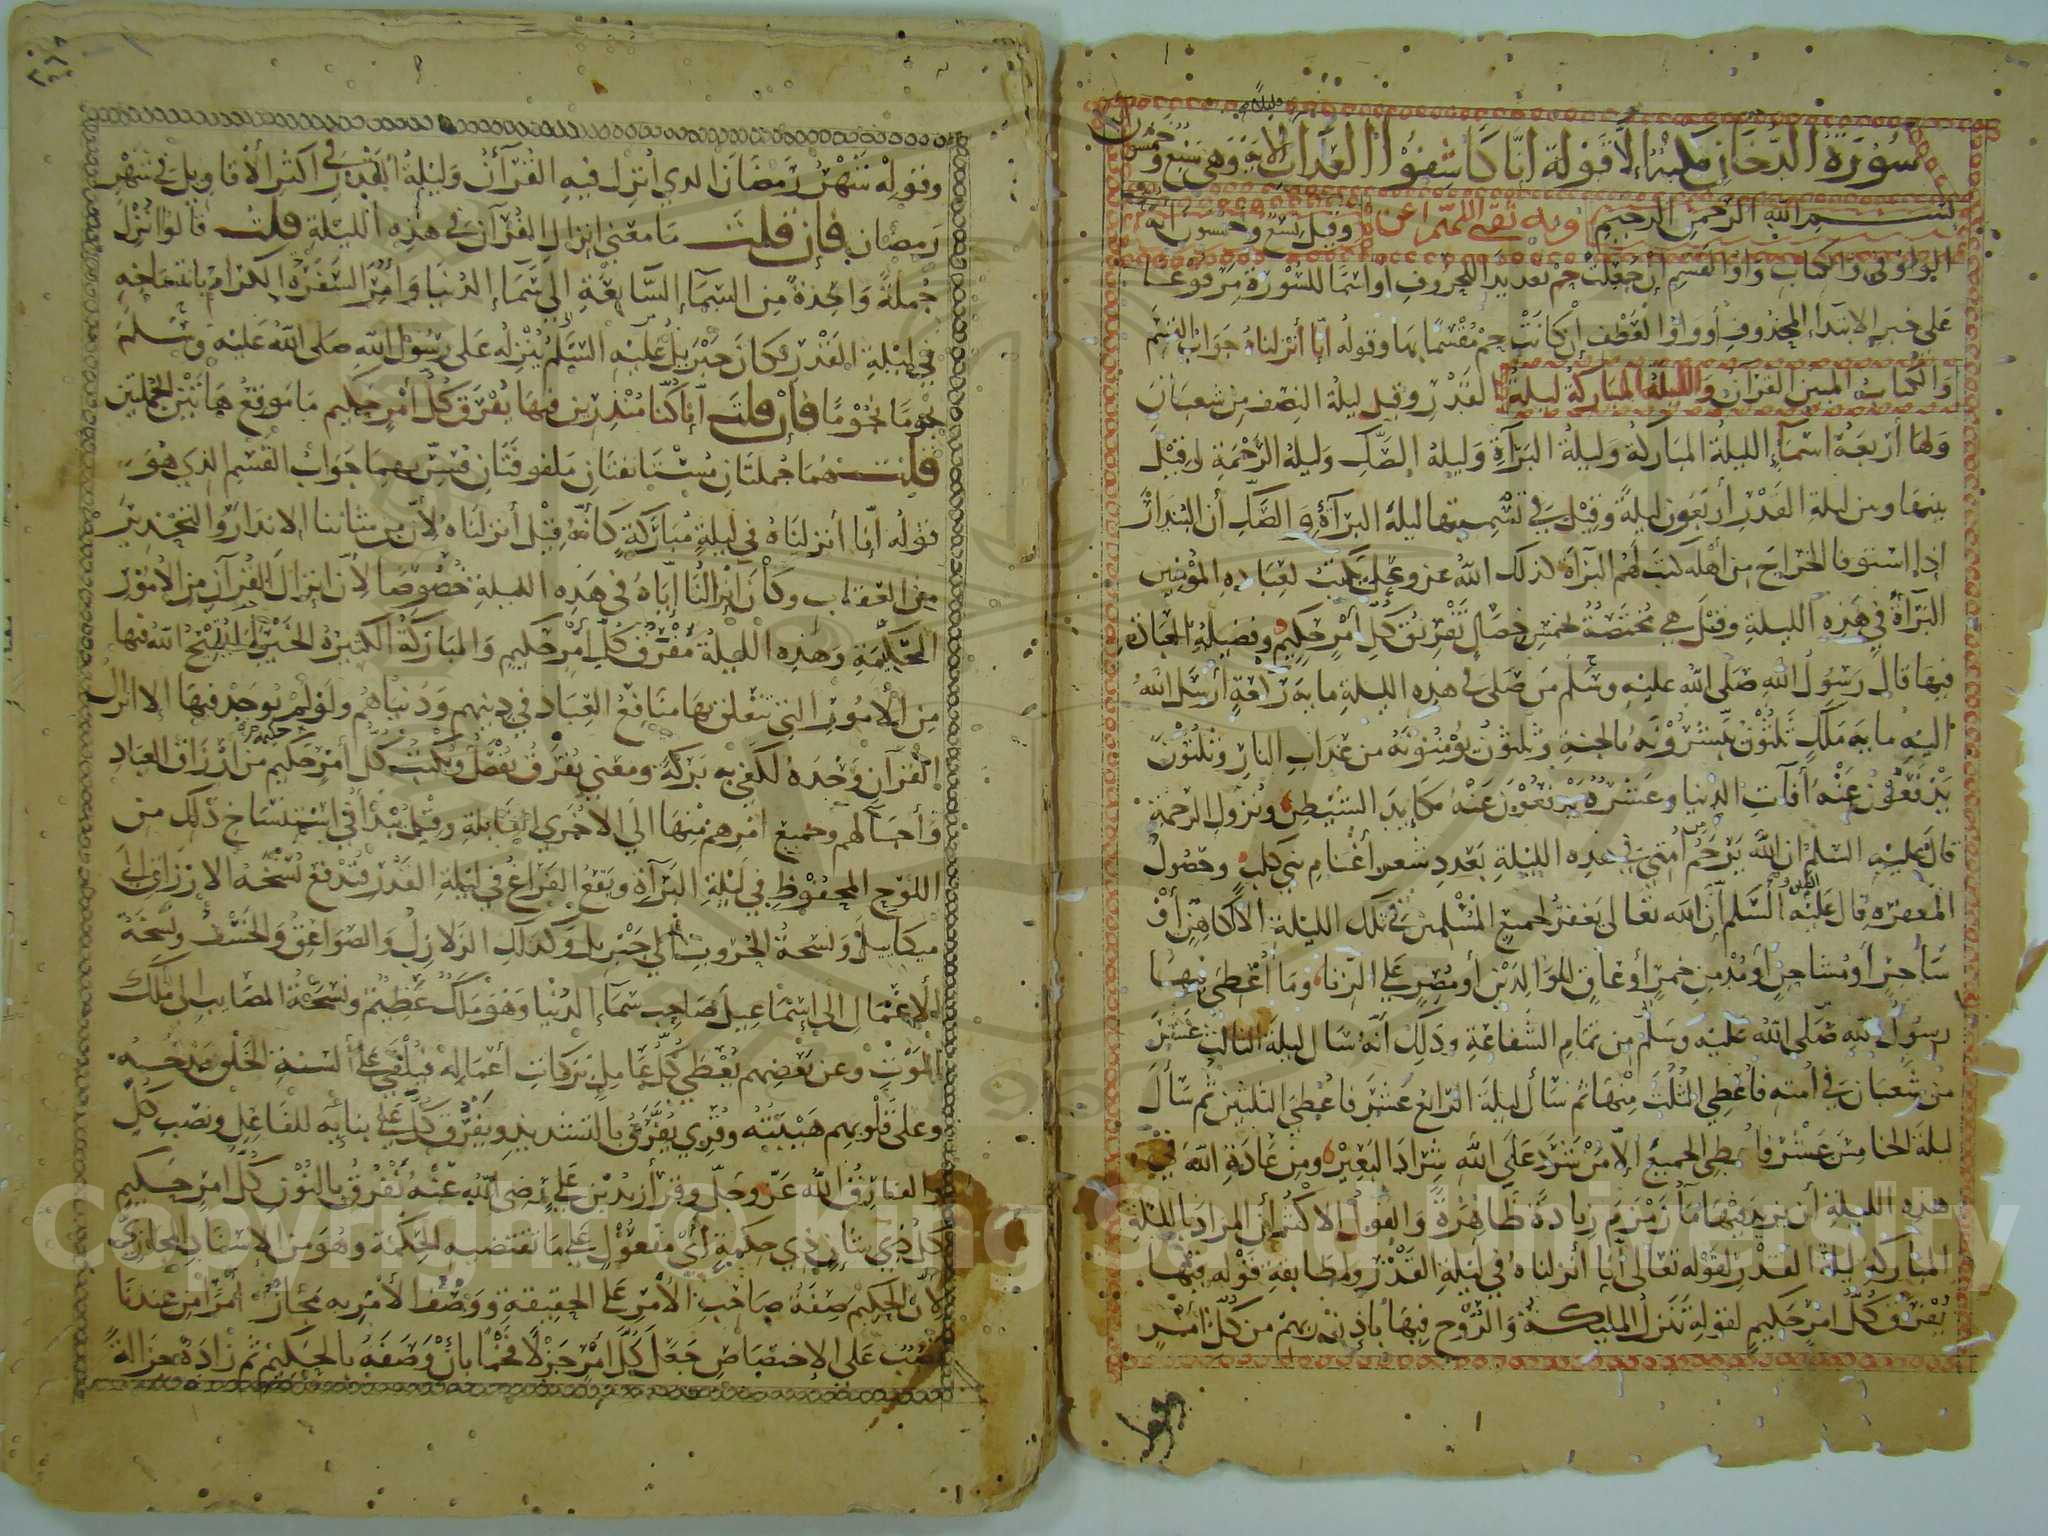 سورة الدخان مكية إلا قوله انا كاشفوا العذاب الاية وهي سبع وخمسون
بسم الله الرحمن الرحيم وبه ثقتي وقيل تسع وخمسون آية
الواو في والكتاب واو القسم إن جعلت حم تعديدا للحروف أو اسما للسورة مرفوعا
على خبر الابتداء المحذوف وواو العطف إن كانت حم مقسما بها وقوله إنا أنزلناه جواب القسم
والكتاب المبين القرآن والليلة المباركة ليلة القدر وقيل ليلة النصف من شعبان
ولها أربعة اسماء الليلة المباركة وليلة البرآة وليلة الصك وليلة الرحمة وقيل
بينها وبين ليلة القدر أربعون ليلة وقيل في تسميتها ليلة البرآة والصك أن البندار
إذا استوفا الخراج من أهله كتب لهم البرآة كذلك الله عز وجل يكتب لعباده المؤمنين
البرآة في هذه الليلة وقيل هي مختصة بخمس خصال تفريق كل أمر حكيم وفضيلة العبادة
فيها قال رسول الله صلى الله عليه وسلم من صلى في هذه الليلة ماية ركعة أرسل الله
اليه ماية ملك ثلثون يبشرونه بالجنة وثلثون يؤمنونه من عذاب النار وثلثون
يدفعون عنه أفات الدنيا وعشرة يدفعون عنه مكايد الشيطن ونزول الرحمة
قال عليه السلم ان الله يرحم أمتي في هذه الليلة بعدد شعر أغنام بني كلب وحصول
المغفرة قال عليه السلم أن الله تعالى يغفر لجميع المسلمين في تلك الليلة الا لكاهن أو
ساحر أو مشاحن أو مدمن خمر أو عاق للوالدين أو مصر على الزنا وما أعطى فيها
رسول الله صلى الله عليه وسلم من تمام الشفاعة وذلك أنه سال ليلة الثالث عشر
من شعبان في أمته فأعطي الثلث منها ثم سأل ليلة الرابع عشر فأعطي الثلثين ثم سأل
ليلة الخامس عشر فأعطي الجميع إلا من شرد على الله شراد البعير ومن عادة الله في
هذه الليلة أن يزيد فيها مآ زمزم زيادة ظاهرة والقول الاكثر أن المراد بالليلة
المباركة ليلة القدر لقوله تعالى إنا أنزلناه في ليلة القدر ولمطابقة قوله فيها
يفرق كل امر حكيم لقوله تنزل المليكة والروح فيها بإذن ربهم من كل أمر
وقوله
وقوله شهر رمضان الذي أنزل فيه القرآن وليلة القدر في أكثر الأقاويل في شهر
رمضان فإن قلت ما معنى إنزال القرآن في هذه الليلة قلت قالوا أنزل
جملة واحدة من السمآء السابعة إلى سماء الدنيا وأمر السفرة الكرام بانتساخه
في ليلة القدر وكان جبريل عليه السلم ينزله على رسول الله صلى الله عليه وسلم
نجوما نجوما فإن قلت إنا كنا منذرين فيها يفرق كل أمر حكيم ما موقع هاتين الجملتين
قلت هما جملتان مستانفتان ملفوفتان فسر بهما جواب القسم الذي هو
قوله إنا أنزلناه في ليلة مباركة كأنه قيل أنزلناه لأن من شاننا الانذار والتحذير
من العقاب وكان إنزالنا إياه في هذه الليلة خصوصا لأن انزال القرآن من الأمور
الحكيمة وهذه الليلة مفرق كل أمر حكيم والمباركة الكثيرة الخير لما يتيح الله فيها
من الأمور التي تتعلق بها منافع العباد في دينهم ودنياهم ولو لم يوجد فيها الا انزال
القرآن وحده لكفى به بركة ومعنى يفرق يفصل ويكتب كل أمر حكيم من أرزاق العباد
وآجالهم وجميع أمرهم منها الى الاخرى القابلة وقيل يبدأ في استنساخ ذلك من
اللوح المحفوظ في ليلة البرآة ويقع الفراغ في ليلة القدر فتدفع نسخة الارزاق إلى
ميكائيل ونسخة الحروب إلى جبريل وكذلك الزلازل والصواعق والخسف ونسخة
الأعمال الى إسماعيل صاحب سماء الدنيا وهو ملك عظيم ونسخة المصايب الى ملك
الموت وعن بعضهم يعطى كل عامل بركات أعماله فيلقى على ألسنة الخلق مدحه
وعلى قلوبهم هيبته وقرئ يفرق بالتشديد ويفرق كل على بنائه للفاعل ونصب كل
والفارق الله عز وجل وقرأ زيد بن علي رضي الله عنه نفرق بالنون كل أمر حكيم
كل ذي شان ذي حكمة أي مفعول على ما تقتضيه الحكمة وهو من الإسناد المجازي
لأن الحكيم صفة صاحب الأمر على الحقيقة ووصف الأمر به مجاز أمرا من عندنا
نصب على الاختصاص جعل كل أمر جزلا فخما بأن وصفه بالحكيم ثم زاده جزالة
Copyright © King Saud University
1957